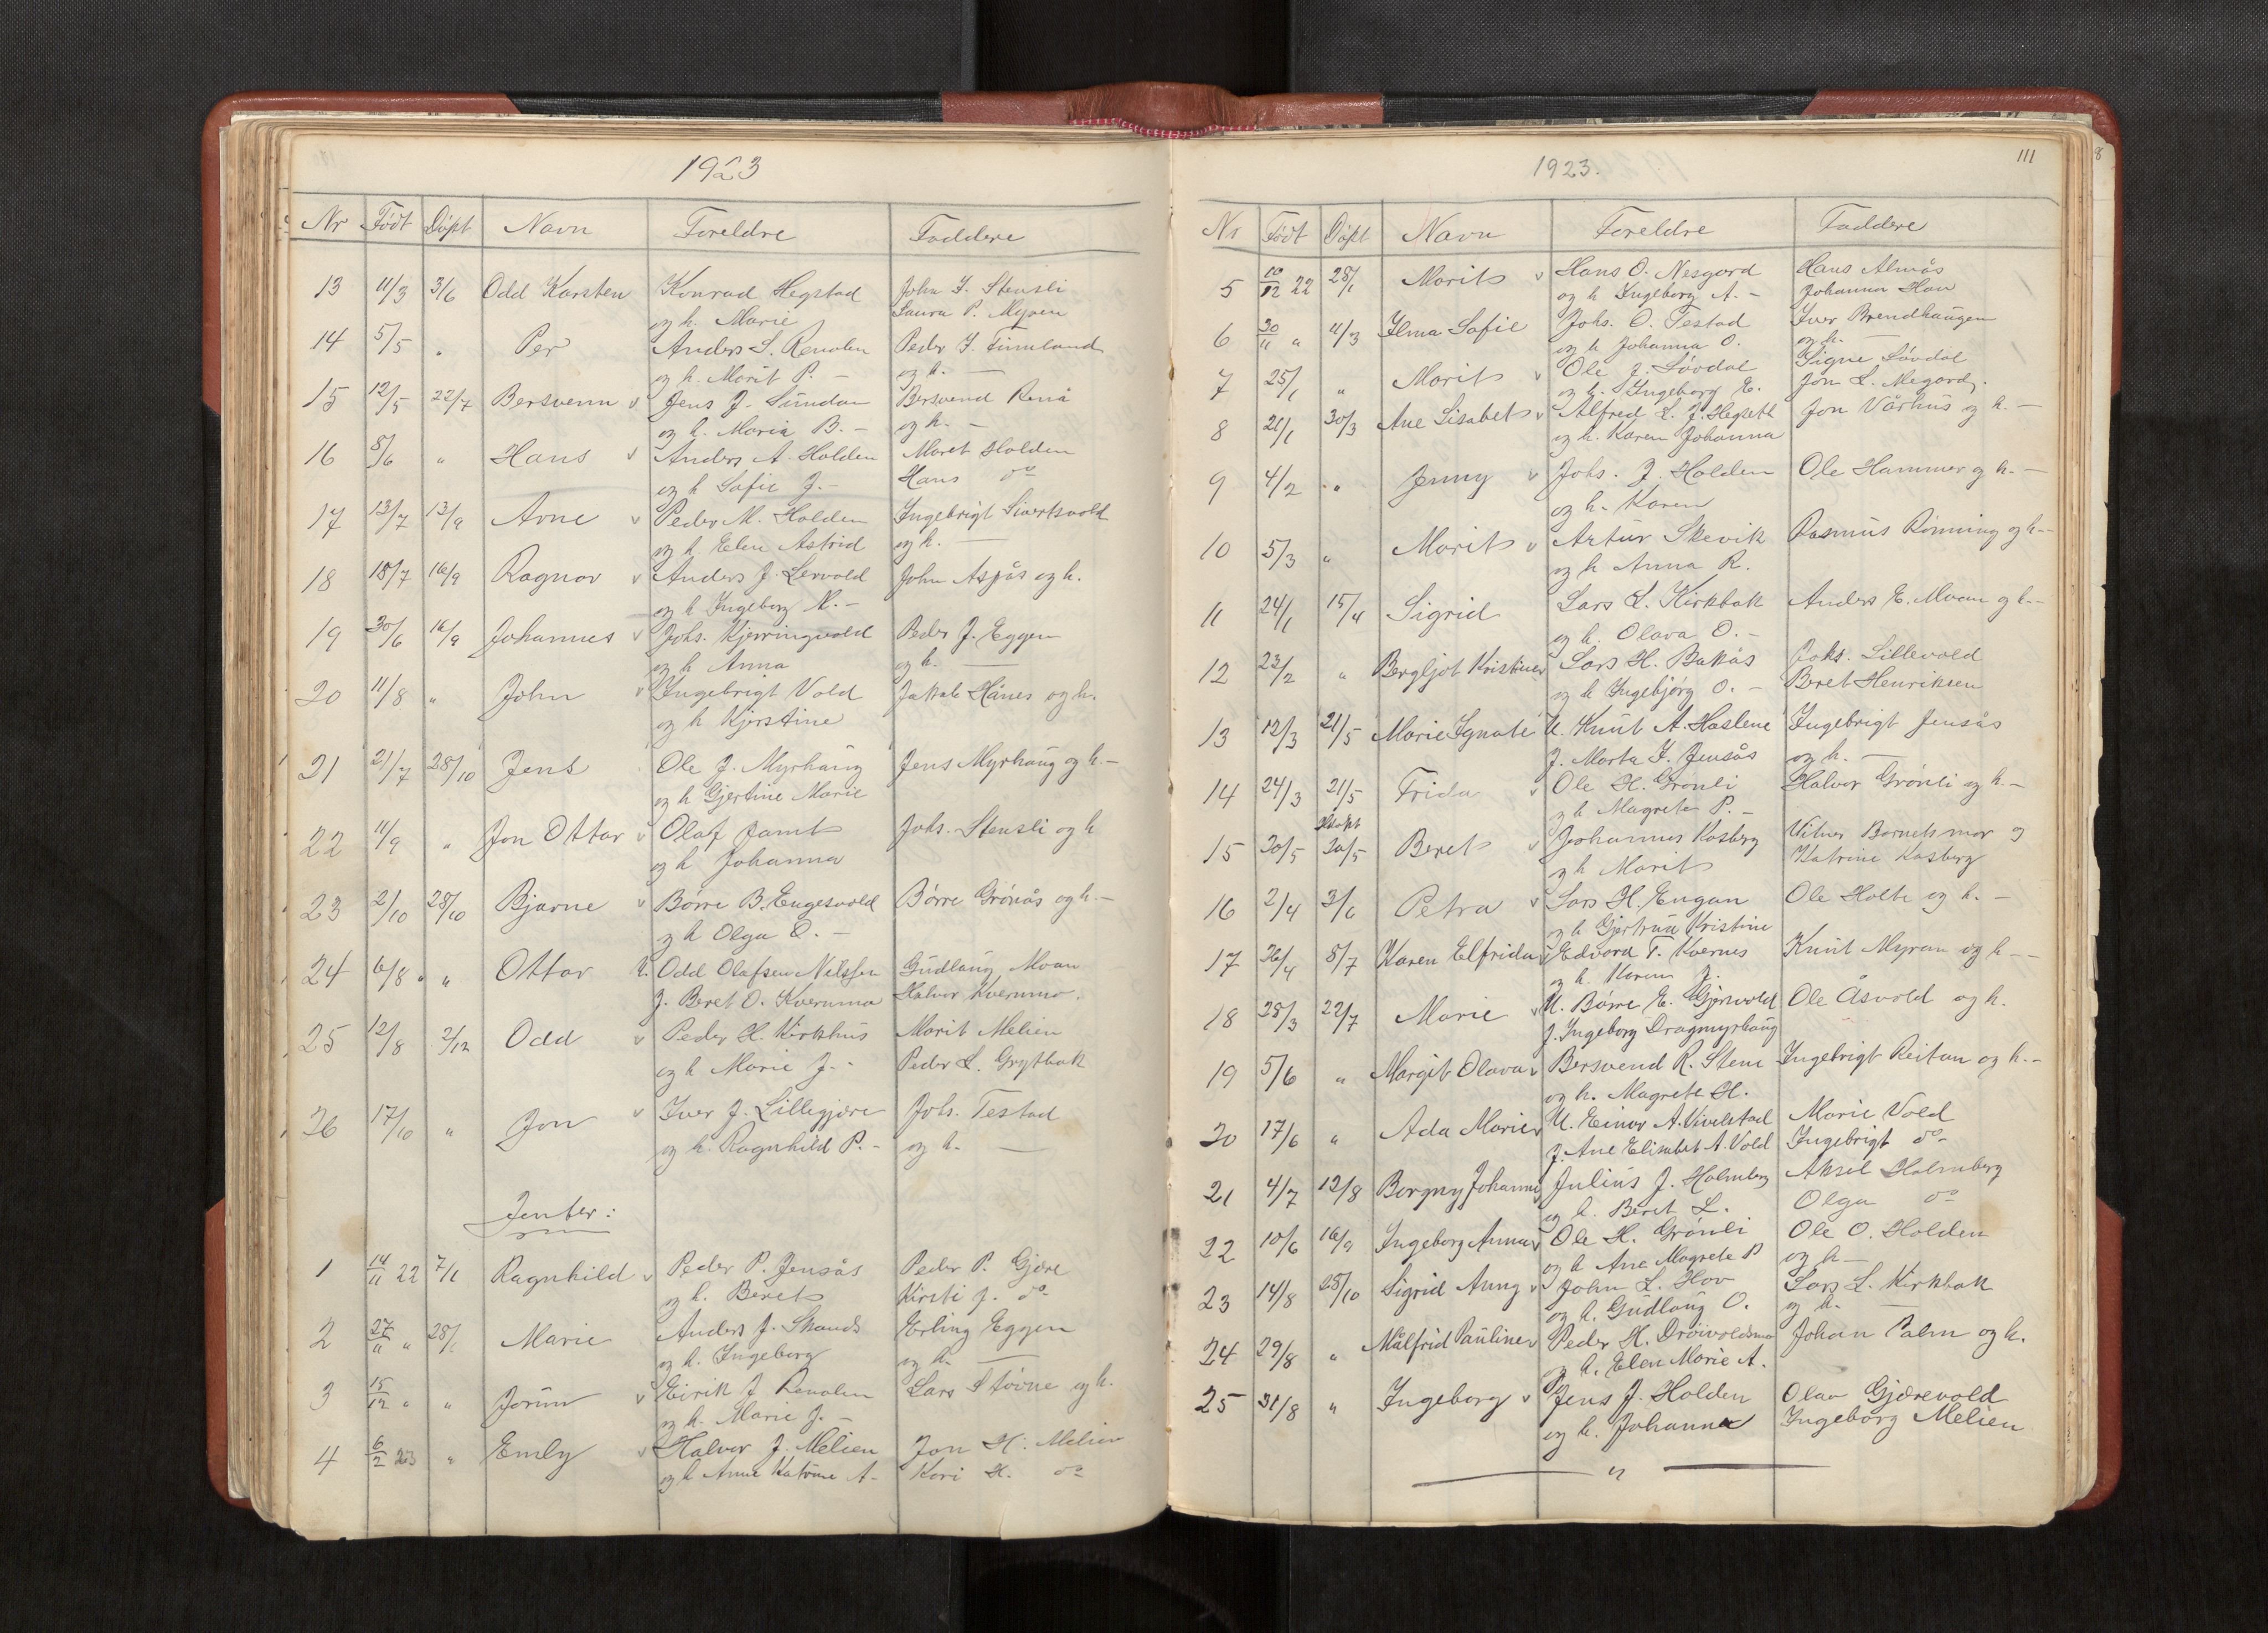 1923
Nr Födt Döpt Navn Foreldre Faddere
13 11/3 3/6 Odd Karsten Konrad Hegstad John J. Stensli
og h. Marie Laura P. Myren
14 5/5 " Per Anders S. Renolen Peder J.
og h. Marit P. - og h. —
15 12/5 22/7 Bersvenn v Jens J. Sundan Bersvend Renå
og h. Maria B. - og h. -
16 8/6 " Hans v Anders A. Holden Maret Holden
og h Sofie J. - Hans do
17 13/7 13/9 Arne v Peder M. Holden Ingebrigt Sivertsvold
og h. Elen Astrid og h. —
18 18/7 16/9 Ragnar v Anders J. Lervold John Aspås og h.
og h Ingeborg N. -
19 30/6 16/9 Johannes v Johs. Kjerringvold Peder J. Eggen
og h Anna og h. —
20 11/8 " John v Ingebrigt Vold Jakob Hånes og h.
og h Kjerstine
21 21/7 28/10 Jens Ole J. Myrhaug Jens Myrhaug og h. -
og h Gjertine Marie
22 11/9 " Jon Ottar v Olaf Jamt Johs. Stensli og h
og h Johanna
23 2/10 28/10 Bjarne v Börre B. Engesvold Börre Grönås og h -
og h Olga O. -
24 6/8 " " Ottar U. Odd Olafsen Nilssen Gudlaug Moan
J. Beret O. Kvernmo Halvor Kvernmo.
25 12/8 2/12 Odd v Peder H. Kirkhus Marit Melien
og h Marie J. - Peder L. Grytbak
26 17/10 " Jon v Iver J. Lillegjære Johs. Testad
og h. Ragnhild P. - og h. —
Jenter:
1 14/11 22 7/1 Ragnhild v Peder P. Jensås Peder P. Gjære
og h. Beret Kirsti J. do
2 27/11 " 28/1 Marie Anders J. Skauds Erling Eggen
og h. Ingeborg og h. —
3 15/12 " " Jorun v Eirik J Renolen Lars Stövne og h.
og h. Marie J. -
4 6/2 23 " Emly v Halvor J. Melien Jon H. Melien
og h Anne Katrine A - Kari H. do
1923.
111
8
Nr Födt Döpt Navn Foreldre Faddere
5 10/12 22 28/1 Marit v Hans O. Nesgard Hans Almås
og h Ingeborg A. - Johanna Hov
6 30/11 " 11/3 Ilma Sofie Johs. O. Testad Iver Brendhaugen
og h Johanna O. og h. —
7 25/1 " Marit v Ole J. Lövdal Signe Lövdal
og h. Ingeborg E. Jon L. Megard.
8 21/1 30/3 Ane Lisabet v Alfred L. J. Hegseth Jon Vårhus og h. -
og h. Karen Johanna
9 4/2 " Jenny v Johs. J. Holden Ole Hammer og h. -
og h. Karen
10 5/3 " Marit v Artur Skevik Rasmus Rönning og h -
og h Anna R.
11 24/1 15/4 Sigrid Lars L. Kirkbak Anders E. Moan og h -
og h. Olava O. -
12 23/2 " Bergljot Kristine v Lars H. Bakås Johs. Lillevold
og h Ingebjörg O. - Beret Henriksen
13 12/3 21/5 Marie Ignate U. Knut A. Haslene Ingebrigt Jensås
J. Marta J. Jensås og h. —
14 24/3 21/5 Frida v Ole H. Grönli Halvor Grönli og h. -
og h Magrete P. -
15 30/5 30/5 Beret v Johannes Kosberg Vitner Barnets mor og
og h Marit Katrine Kosberg
16 2/4 3/6 Petra v Lars H. Engan Ole Holte og h. -
og h Gjertrud Kristine
17 26/4 8/7 Karen Elfrida v Edvard T. Kvernes Knut Myran og h -
og h. Karen J.
18 28/3 22/7 Marie v U. Börre E. Gjervold Ole Åsvold og h.
J. Ingeborg Dragmyrhaug
19 5/6 " Margit Olava v Bersvend R. Stene Ingebrigt Reitan og h. -
og h. Magrete H.
20 17/6 " Ada Marie v U. Einar A. Kvelstad Marie Vold
J. Ane Elisabet A. Vold Ingebrigt do
21 4/7 12/8 Borgny Johanne Julius J. Holmberg Aksel Holmberg
og h. Beret L. Olga do
22 10/6 16/9 Ingeborg Anna v Ole H. Grönli Ole O. Holden
og h Ane Magrete P og h -
23 14/8 28/10 Sigrid Auny v John L. Hov Lars L. Kirkbak
og h. Gudlaug O. og h. —
24 29/8 " Målfrid Pauline v Peder H. Dröivoldsmo Johan Palm og h.
og h. Elen Marie A.
25 31/8 " Ingeborg v Jens J. Holden Olav Gjærevold
og h. Johanna Ingeborg Melien
— " —